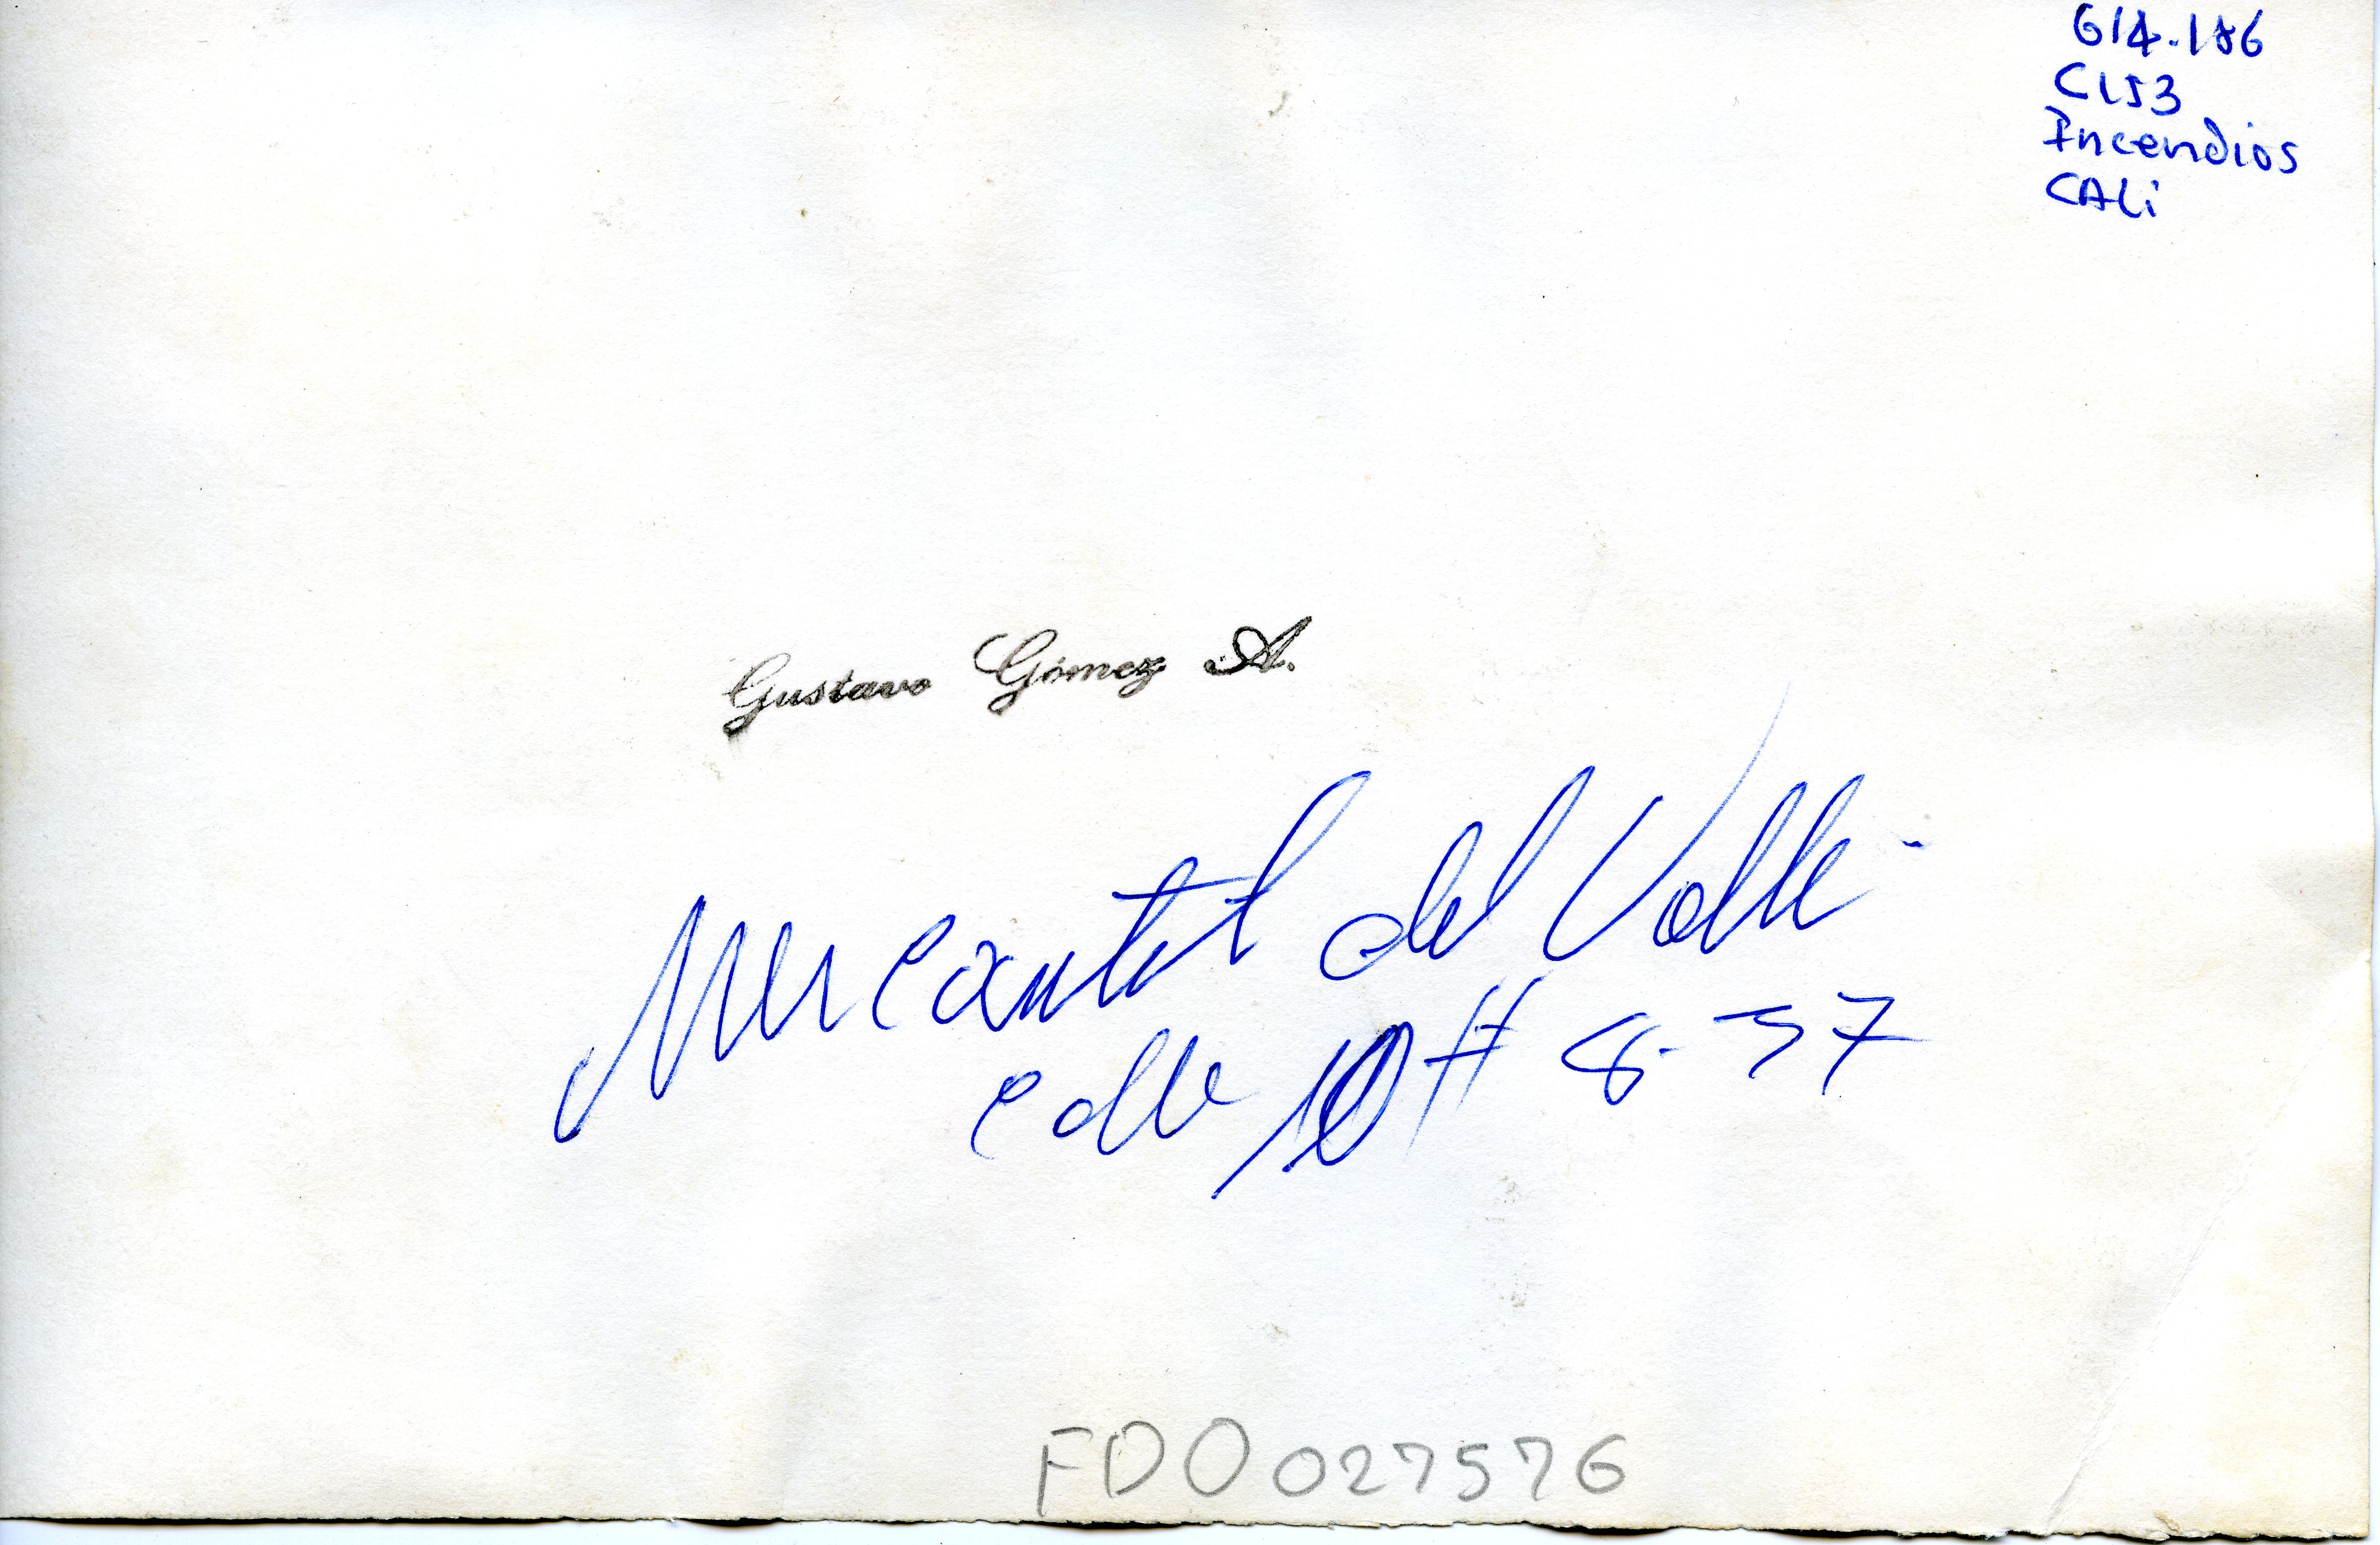 614.186
C153
Incendios
CALi
Gustavo Gómez A.
Mercantil del Valle -
Calle 10 # 8-57
FDO027576